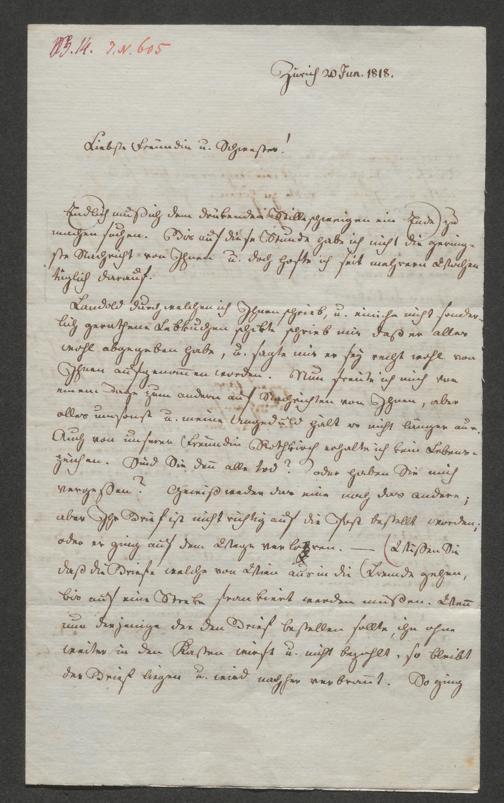 J.N. 605
Zürich 20 Jun. 1818.
Liebste Freundin u. Schwester!
Endlich muß ich dem drückenden Stillschweigen ein Ende zu
machen suchen. Bis auf diese Stunde hab ich nicht die gering-
ste Nachricht von Ihnen u. doch hoffte ich seit mehrern Wochen
täglich darauf.
Landold durch welchen ich Ihnen schrieb, u. einige nicht sonder-
lich gerathene Lebkuchen schikte schrieb mir daß er alles
wohl abgegeben habe, u. sagte mir er sey recht wohl von
Ihnen aufgenommen worden. Nun freute ich mich von
einem Tage zum andern auf Nachrichten von Ihnen, aber
alles umsonst u. meine Ungeduld halt es nicht länger aus.
Auch von unserer Freundin Rothkirch erhalte ich kein Lebens-
zeichen. Sind Sie den alle tod? oder haben Sie mich
vergeßen? Gewiß weder das eine noch das andere;
aber Ihr Brief ist nicht richtig auf die Post bestellt worden;
oder er ging auf dem Wege verlohren. — Wißen Sie
daß die Briefe welche von Wien aus in die Fremde gehen,
bis auf eine Streke frankiert werden müßen. Wenn
nun derjenige der den Brief bestellen sollte ihn ohne
weiter in den Kasten wirft u. nicht bezahlt, so bleibt
der Brief liegen u. wird nachher verbrant. So ging